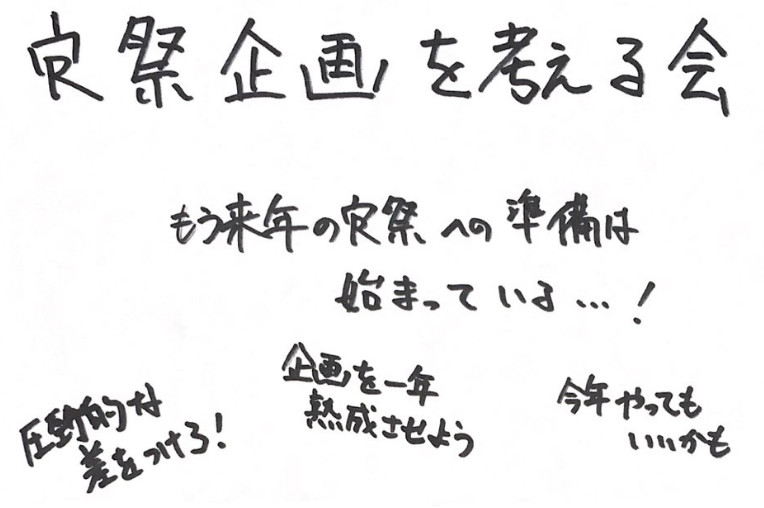 寮祭企画を考える会
もう来年の寮祭への準備は
始まっている…！
圧倒的な
差をつけろ！
企画を一年
熟成させよう
今年やっても
いいかも